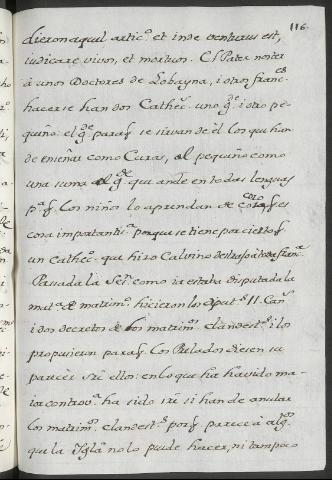 116.
dieron aquel artic.º et inde venturus est,
iudicare vivos, et mortuos. El Pater noster
à unos Doctores de Lobayna, i otros franc.es
hacerse han dos Cathec.º uno g.de i otro pe-
queño: el g.de para q̃ se sirvan de èl los que han
de enseñar como Curas, el pequeño como
una suma del g.de que ande en todas lenguas
p.a q̃ los niños lo aprendan de coro, q̃ es
cosa importantis.a porque se tiene por cierto q̃
un cathec.º que hizo Calvino destruyò à toda Fran.a
Passada la Ses.n como ia estaba disputada la
mat.a de matrim.º hicieron los Diput.s 11. Can.s
i dos decretos de los matrim.s clandest.s i los
propusieron para q̃ los Prelados diesen su
parecer sre ellos: en lo que ha havido ma-
ior controv.a ha sido sre si han de anular
los matrim.s clandest.s por q̃ parece à alg.s
que la Igl.a no lo puede hacer, ni tampoco